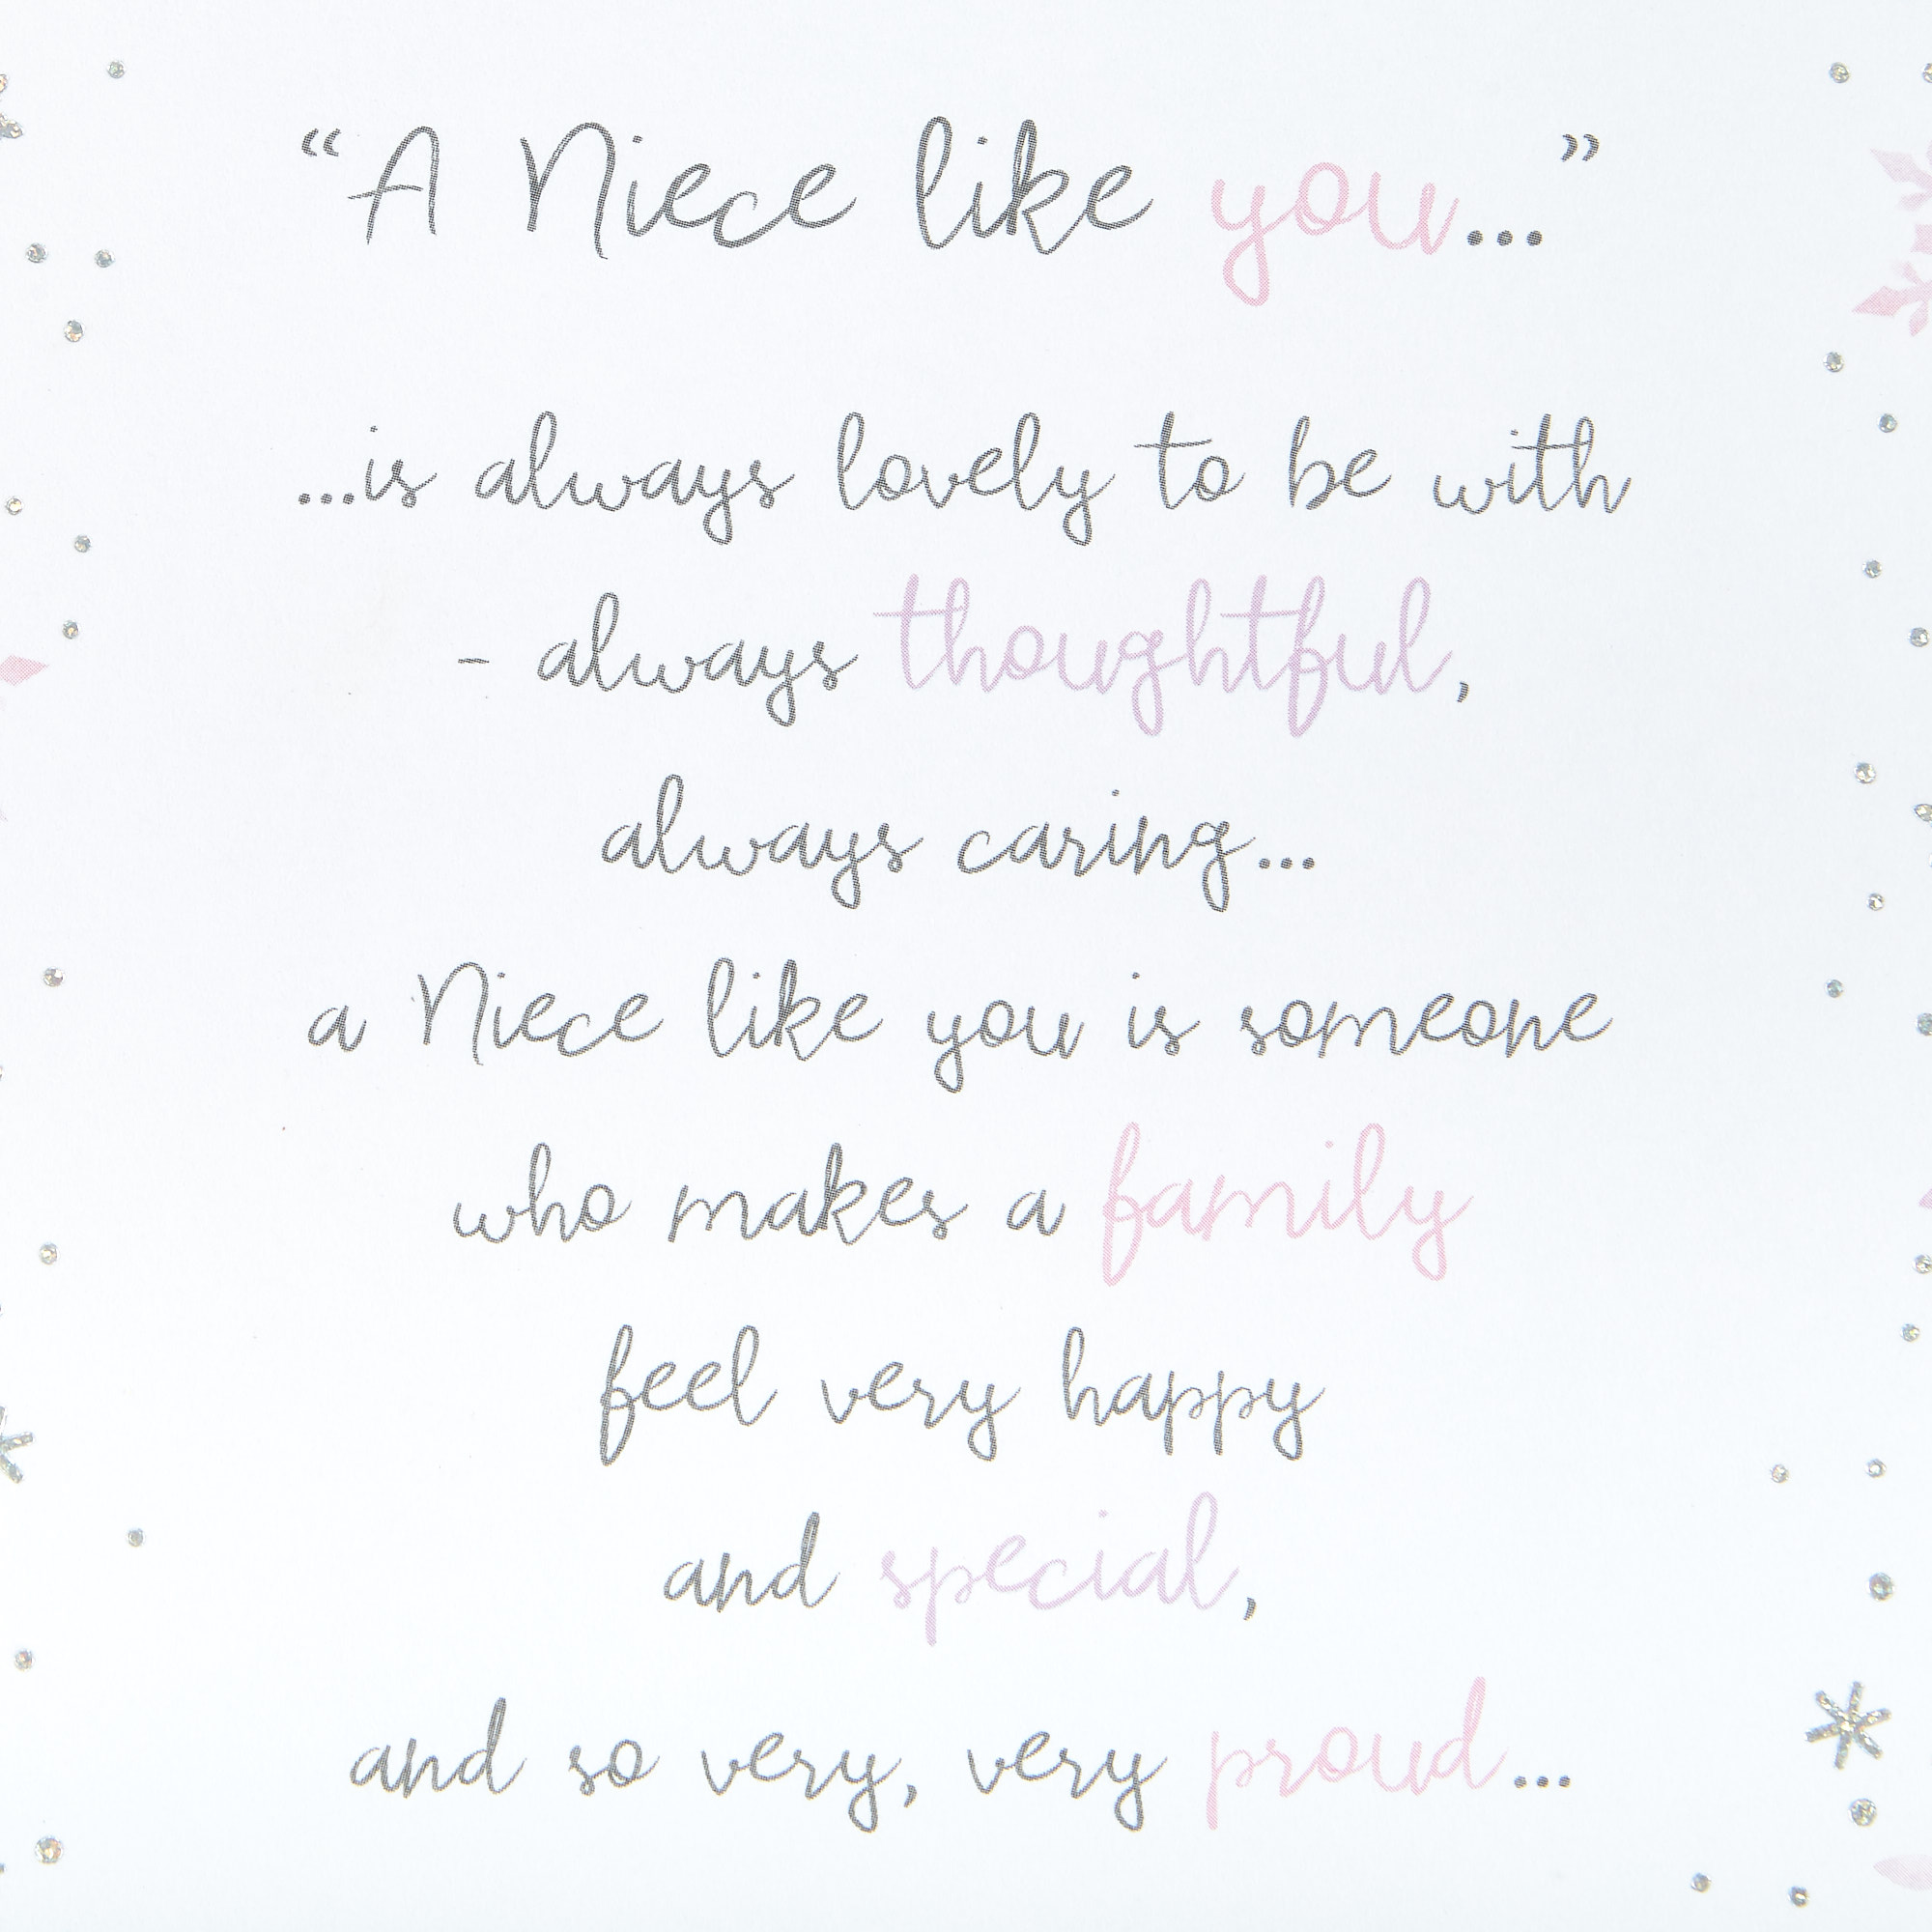 “A Niece like you...”
...is always lovely to be with
- always thoughtful,
always caring...
a Niece like you is someone
who makes a family
feel very happy
and special,
and so very, very proud...